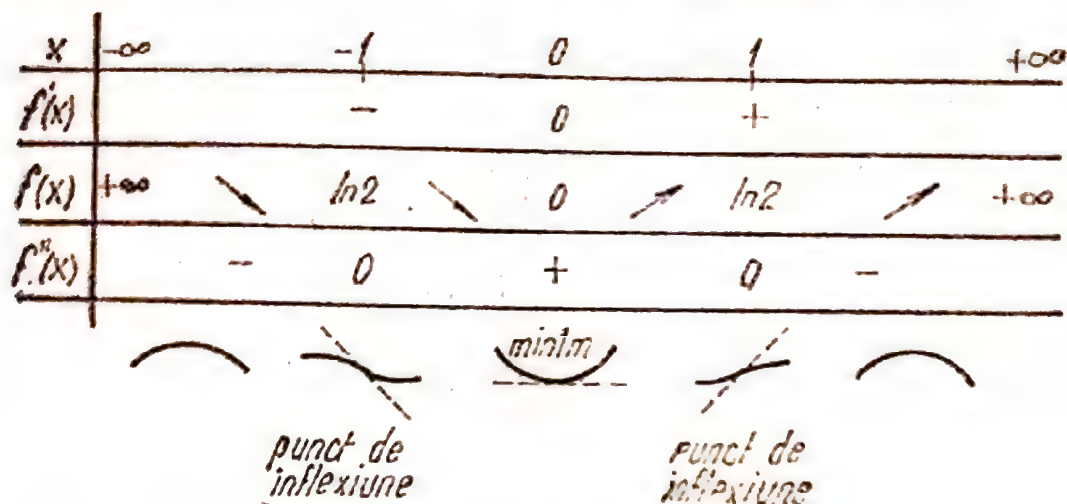 x -∞ -1 0 1 +∞
f'(x) - 0 +
f(x) +∞ ↘ ln2 ↘ 0 ↗ ln2 ↗ +∞
f''(x) - 0 + 0 -
minim
punct de
inflexiune
punct de
inflexiune